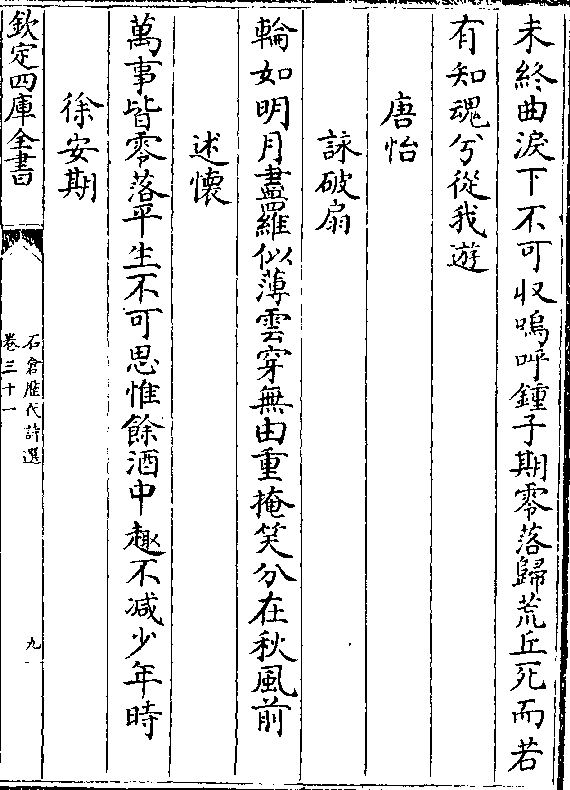 未終曲淚下不可収嗚呼鍾子期零落歸荒丘死而若
有知魂兮從我遊
唐怡
詠破扇
輪如明月盡羅似薄雲穿無由重掩笑分在秋風前
述懷
萬事皆零落平生不可思惟餘酒中趣不减少年時
徐安期
欽定四庫全書
石倉歴代詩選
卷三十一
九